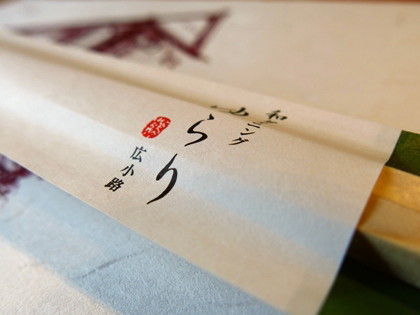 和ダイニング
らり
広小路